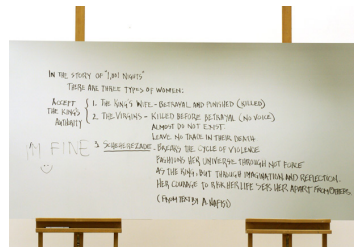 IN THE STORY OF "1,001 NIGHTS"
THERE ARE THREE TYPES OF WOMEN:
ACCEPT THE KING'S AUTHORITY
1. THE KING'S WIFE - BETRAYAL AND PUNISHED (KILLED)
2. THE VIRGINS - KILLED BEFORE BETRAYAL (NO VOICE)
ALMOST DO NOT EXIST.
LEAVE NO TRACE IN THEIR DEATH
I'M FINE
3. SCHEHEREZADE. BREAKS THE CYCLE OF VIOLENCE
FASHIONS HER UNIVERSE THROUGH NOT FORCE
AS THE KING, BUT THROUGH IMAGINATION AND REFLECTION.
HER COURAGE TO RISK HER LIFE SETS HER APART FROM OTHERS.
(FROM A. NAFISI)